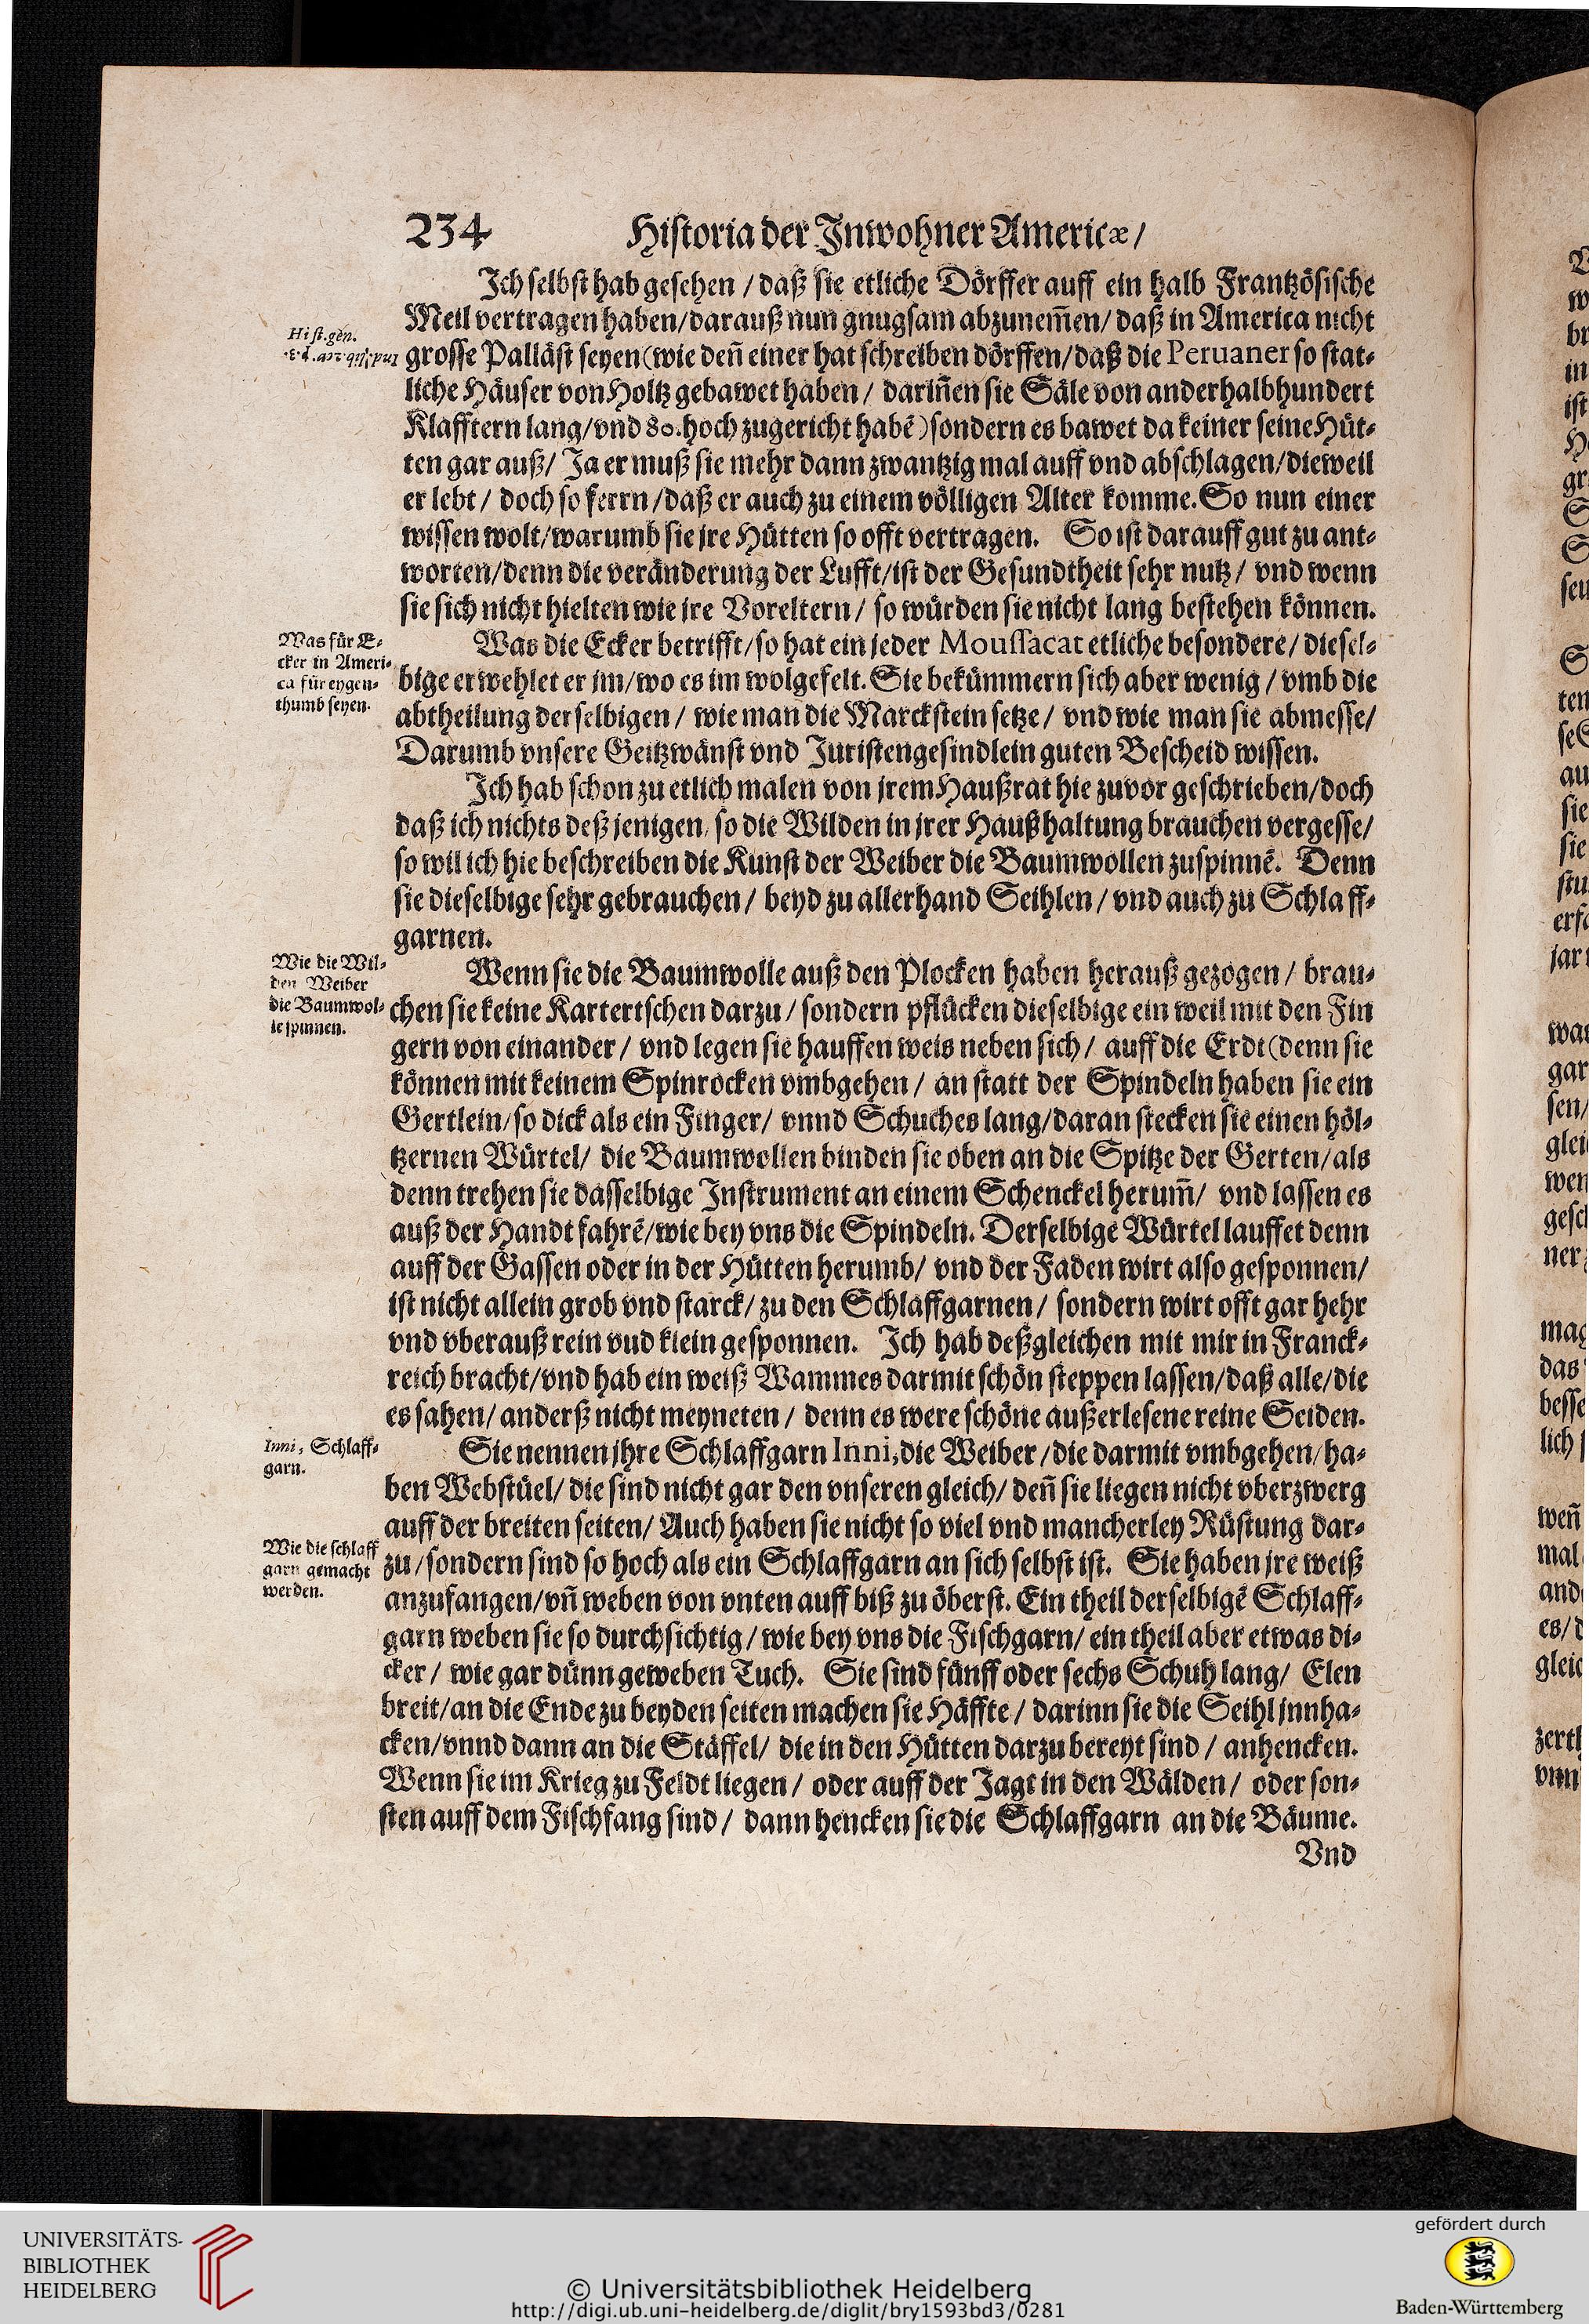 234 Historia der Inwohner Americæ/
Ich selbst hab gesehen / daß sie etliche Dörffer auff ein halb Frantzösische
Meil vertragen haben/darauß nun gnugsam abzunem̃en/ daß in America nicht
Hist.gen.
grosse Palläst seyen(wie deñ einer hat schreiben dörffen/daß die Peruaner so stat⸗
liche Häuser von Holtz gebawet haben / dariñen sie Säle von anderhalbhundert
Klafftern lang/vnd 80.hoch zugericht habẽ)sondern es bawet da keiner seine Hüt⸗
ten gar auß/ Ja er muß sie mehr dann zwantzig mal auff vnd abschlagen/dieweil
er lebt / doch so ferrn/daß er auch zu einem völligen Alter komme. So nun einer
wissen wolt/warumb sie jre Hütten so offt vertragen. So ist darauff gut zu ant⸗
worten/denn die veränderung der Lufft/ist der Gesundtheit sehr nutz / vnd wenn
sie sich nicht hielten wie jre Voreltern / so würden sie nicht lang bestehen können.
Was für E⸗
cker in Ameri⸗
ca für eygen⸗
thumb seyen.
Was die Ecker betrifft/so hat ein jeder Moussacat etliche besondere / diesel⸗
bige erwehlet er jm/wo es im wolgefelt. Sie bekümmern sich aber wenig / vmb die
abtheilung derselbigen / wie man die Marckstein setze / vnd wie man sie abmesse/
Darumb vnsere Geitzwänst vnd Juristengesindlein guten Bescheid wissen.
Ich hab schon zu etlich malen von jrem Haußrat hie zuvor geschrieben/doch
daß ich nichts deß jenigen, so die Wilden in jrer Haußhaltung brauchen vergesse/
so wil ich hie beschreiben die Kunst der Weiber die Baumwollen zuspinnẽ. Denn
sie dieselbige sehr gebrauchen / beyd zu allerhand Seihlen / vnd auch zu Schlaff⸗
garnen.
Wie die Wil⸗
den Weiber
die Baumwol⸗
le spinnen.
Wenn sie die Baumwolle auß den Plocken haben herauß gezogen / brau⸗
chen sie keine Kartertschen darzu / sondern pflücken dieselbige ein weil mit den Fin
gern von einander / vnd legen sie hauffen weis neben sich / auff die Erdt(denn sie
können mit keinem Spinrocken vmbgehen / an statt der Spindeln haben sie ein
Gertlein/so dick als ein Finger/ vnnd Schuches lang/daran stecken sie einen höl⸗
tzernen Würtel/ die Baumwollen binden sie oben an die Spitze der Gerten/als
denn trehen sie dasselbige Instrument an einem Schenckel herum̃/ vnd lassen es
auß der Handt fahrẽ/wie bey vns die Spindeln. Derselbige Würtel lauffet denn
auff der Gassen oder in der Hütten herumb/ vnd der Faden wirt also gesponnen/
ist nicht allein grob vnd starck/ zu den Schlaffgarnen / sondern wirt offt gar hehr
vnd vberauß rein vnd klein gesponnen. Ich hab deßgleichen mit mir in Franck⸗
reich bracht/vnd hab ein weiß Wammes darmit schön steppen lassen/daß alle/die
es sahen/ anderß nicht meyneten / denn es were schöne außerlesene reine Seiden.
Inni, Schlaff⸗
garn.
Sie nennen jhre Schlaffgarn Inni, die Weiber /die darmit vmbgehen/ha⸗
ben Webstüel/ die sind nicht gar den vnseren gleich/ deñ sie liegen nicht vberzwerg
auff der breiten seiten/ Auch haben sie nicht so viel vnd mancherley Rüstung dar⸗
Wie die schlaff
garn gemacht
werden.
zu /sondern sind so hoch als ein Schlaffgarn an sich selbst ist. Sie haben jre weiß
anzufangen/vñ weben von vnten auff biß zu öberst. Ein theil derselbigẽ Schlaff⸗
garn weben sie so durchsichtig / wie bey vns die Fischgarn/ ein theil aber etwas di⸗
cker / wie gar dünn geweben Tuch. Sie sind fünff oder sechs Schuh lang/ Elen
breit/an die Ende zu beyden seiten machen sie Häffte / darinn sie die Seihl jnnha⸗
cken/vnnd dann an die Stäffel/ die in den Hütten darzu bereyt sind / anhencken.
Wenn sie im Krieg zu Feldt liegen / oder auff der Jagt in den Wälden / oder son⸗
sten auff dem Fischfang sind / dann hencken sie die Schlaffgarn an die Bäume.
Vnd
UNIVERSITÄTS-
BIBLIOTHEK
HEIDELBERG
© Universitätsbibliothek Heidelberg
http://digi.ub.uni-heidelberg.de/diglit/bry1593bd3/0281
gefördert durch
Baden-Württemberg